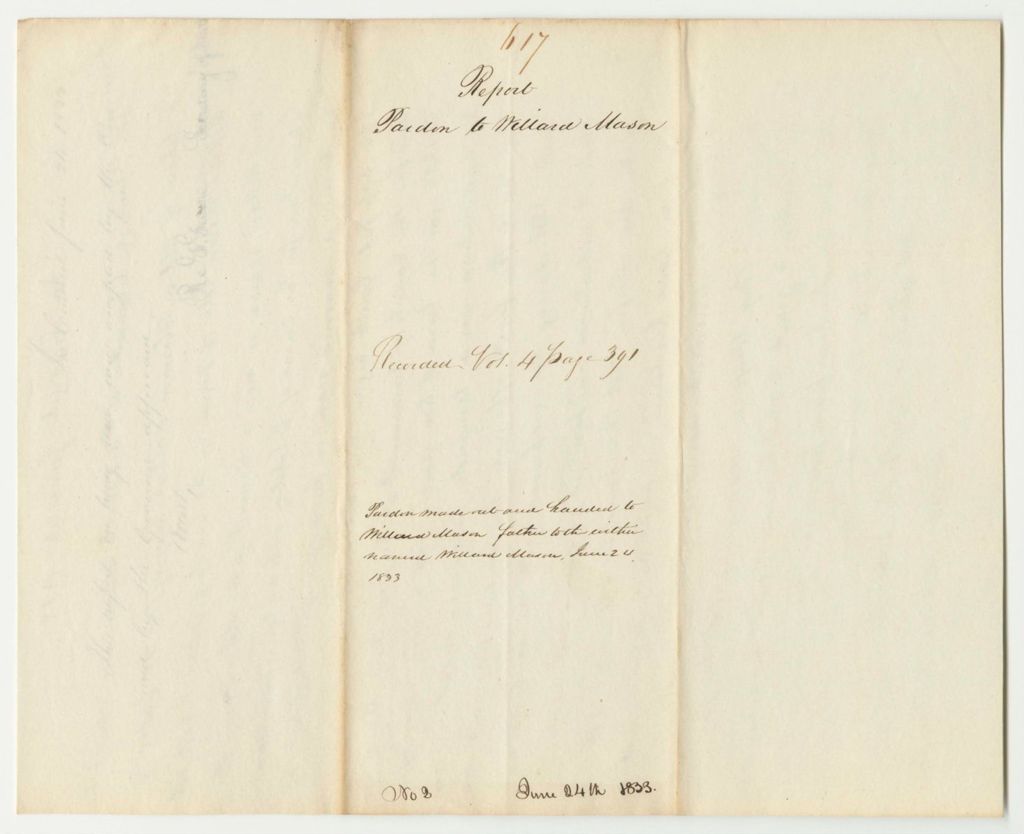 617
Report
Pardon to Willard Mason
Recorded Vol. 4 page 391
Pardon made out and handed to
Willard Mason father to the within
named Willard Mason, June 24
1833
No 2 June 24th 1833.